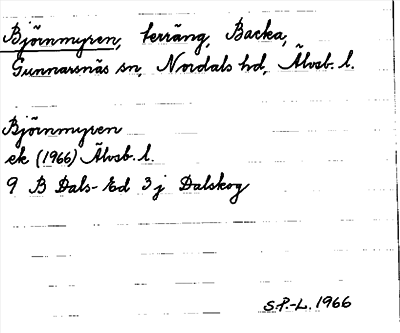 Björnmyren, terräng, Backa,
Gunnarsnäs sn, Nordals hd, Älvsb. l.
Björnmyren
ek (1966) Älvsb. l.
9 B Dals-Ed 3j Dalskog
S.P.-L. 1966